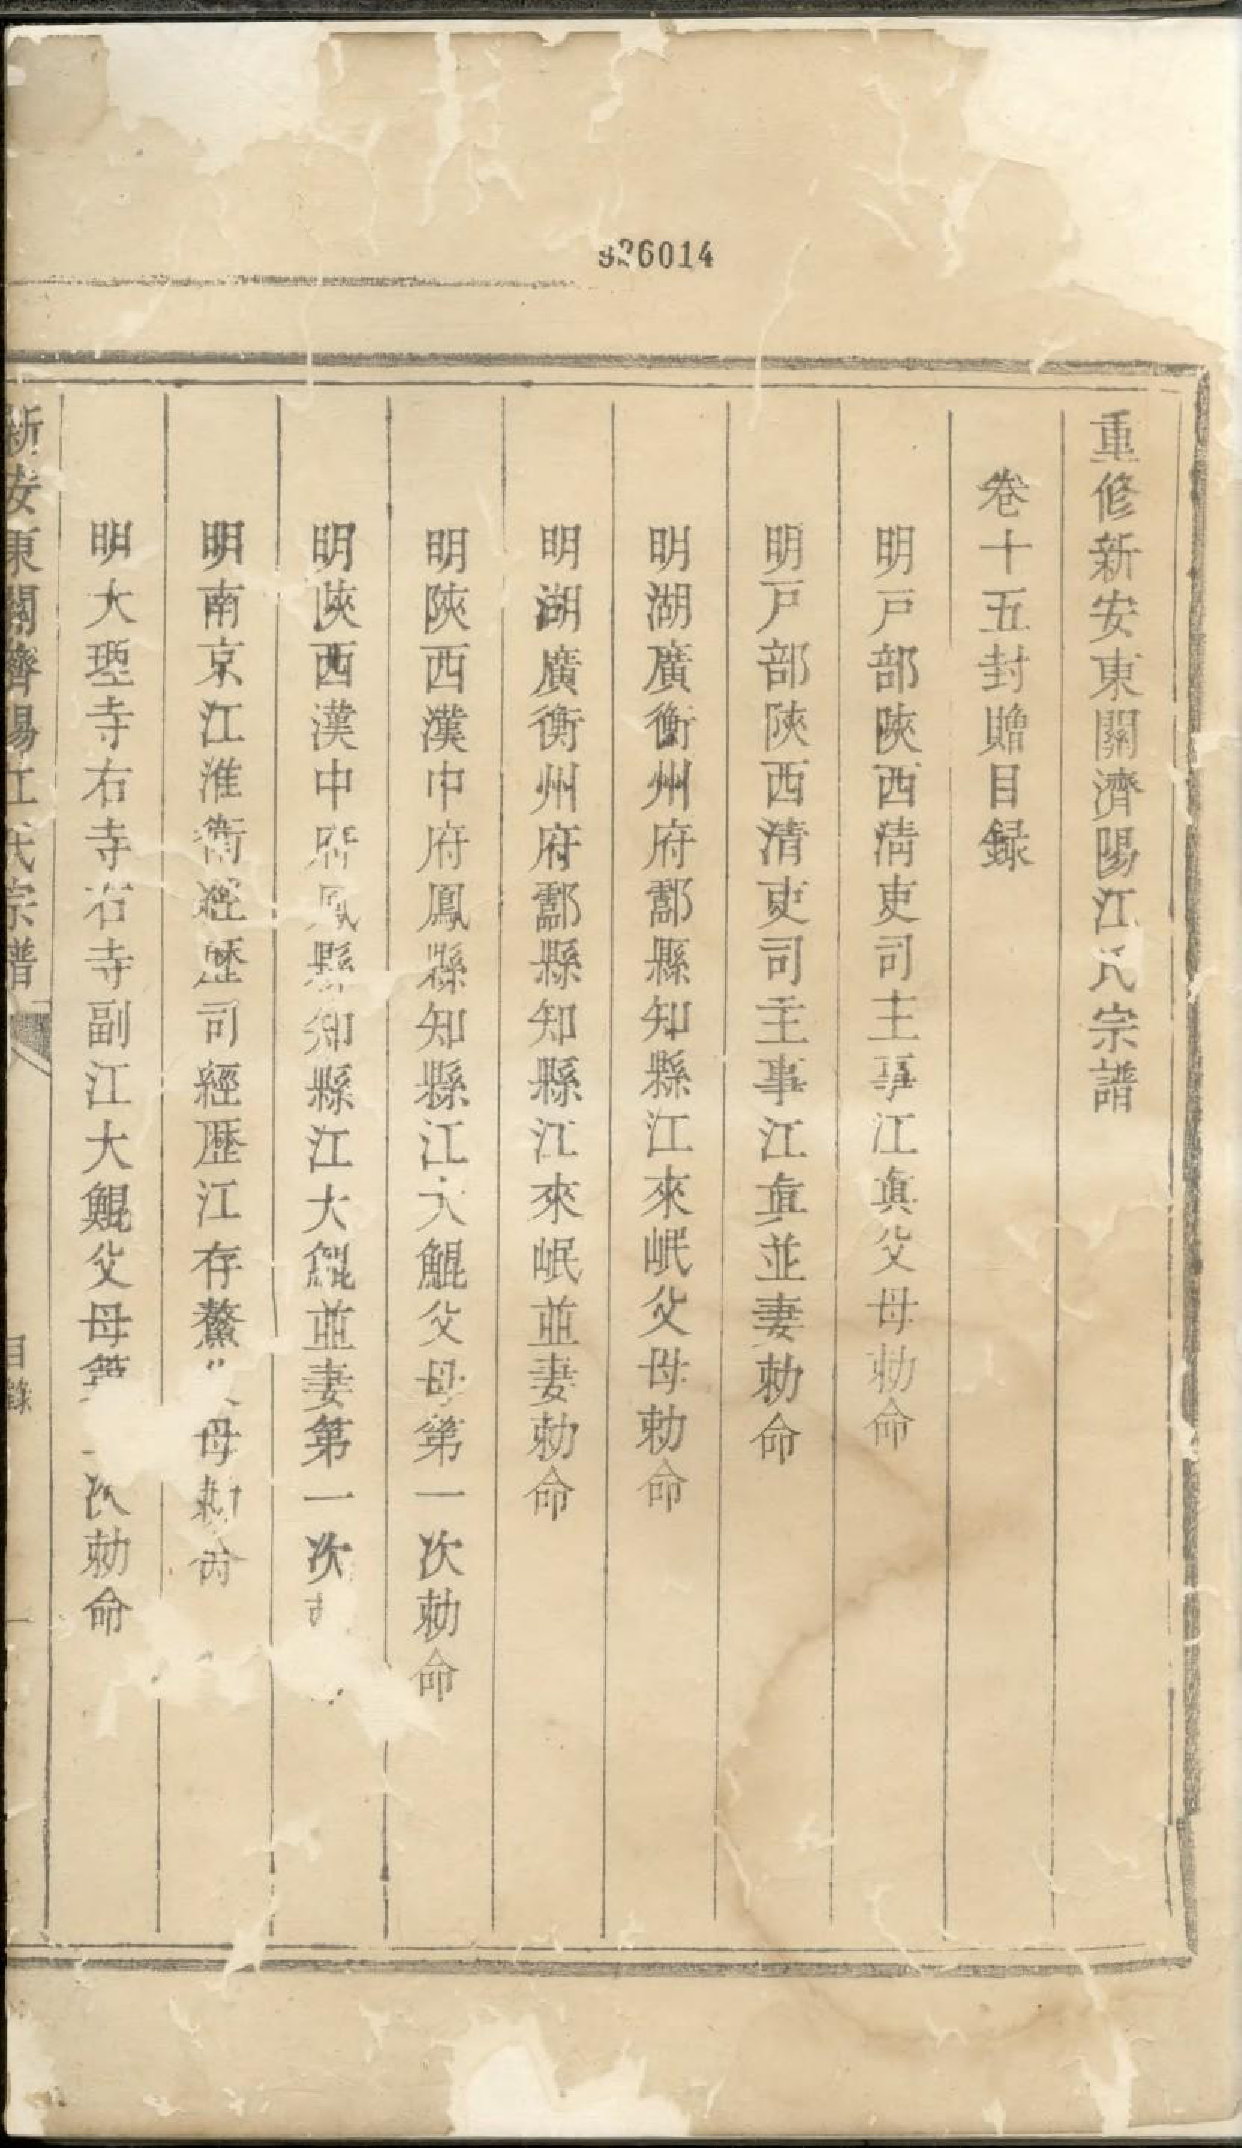 926014
重修新安東關濟陽江氏宗譜
卷十五封贈目録
明戸部陝西清吏司主事江眞父母勅命
明戸部陝西清吏司主事江眞並妻勅命
明湖廣衡州府酃縣知縣江來岷父母勅命
明湖廣衡州府酃縣知縣江來岷並妻勅命
明陝西漢中府鳳縣知縣江大鯤父母第一次勅命
明陝西漢中府鳳縣知縣江大鯤並妻第一次
明南京江淮衛經歷司經歷江存鰲母勅命
明大理寺右寺右寺副江大鯤父母第次勅命
新安東關濟陽江氏宗譜
目錄
一